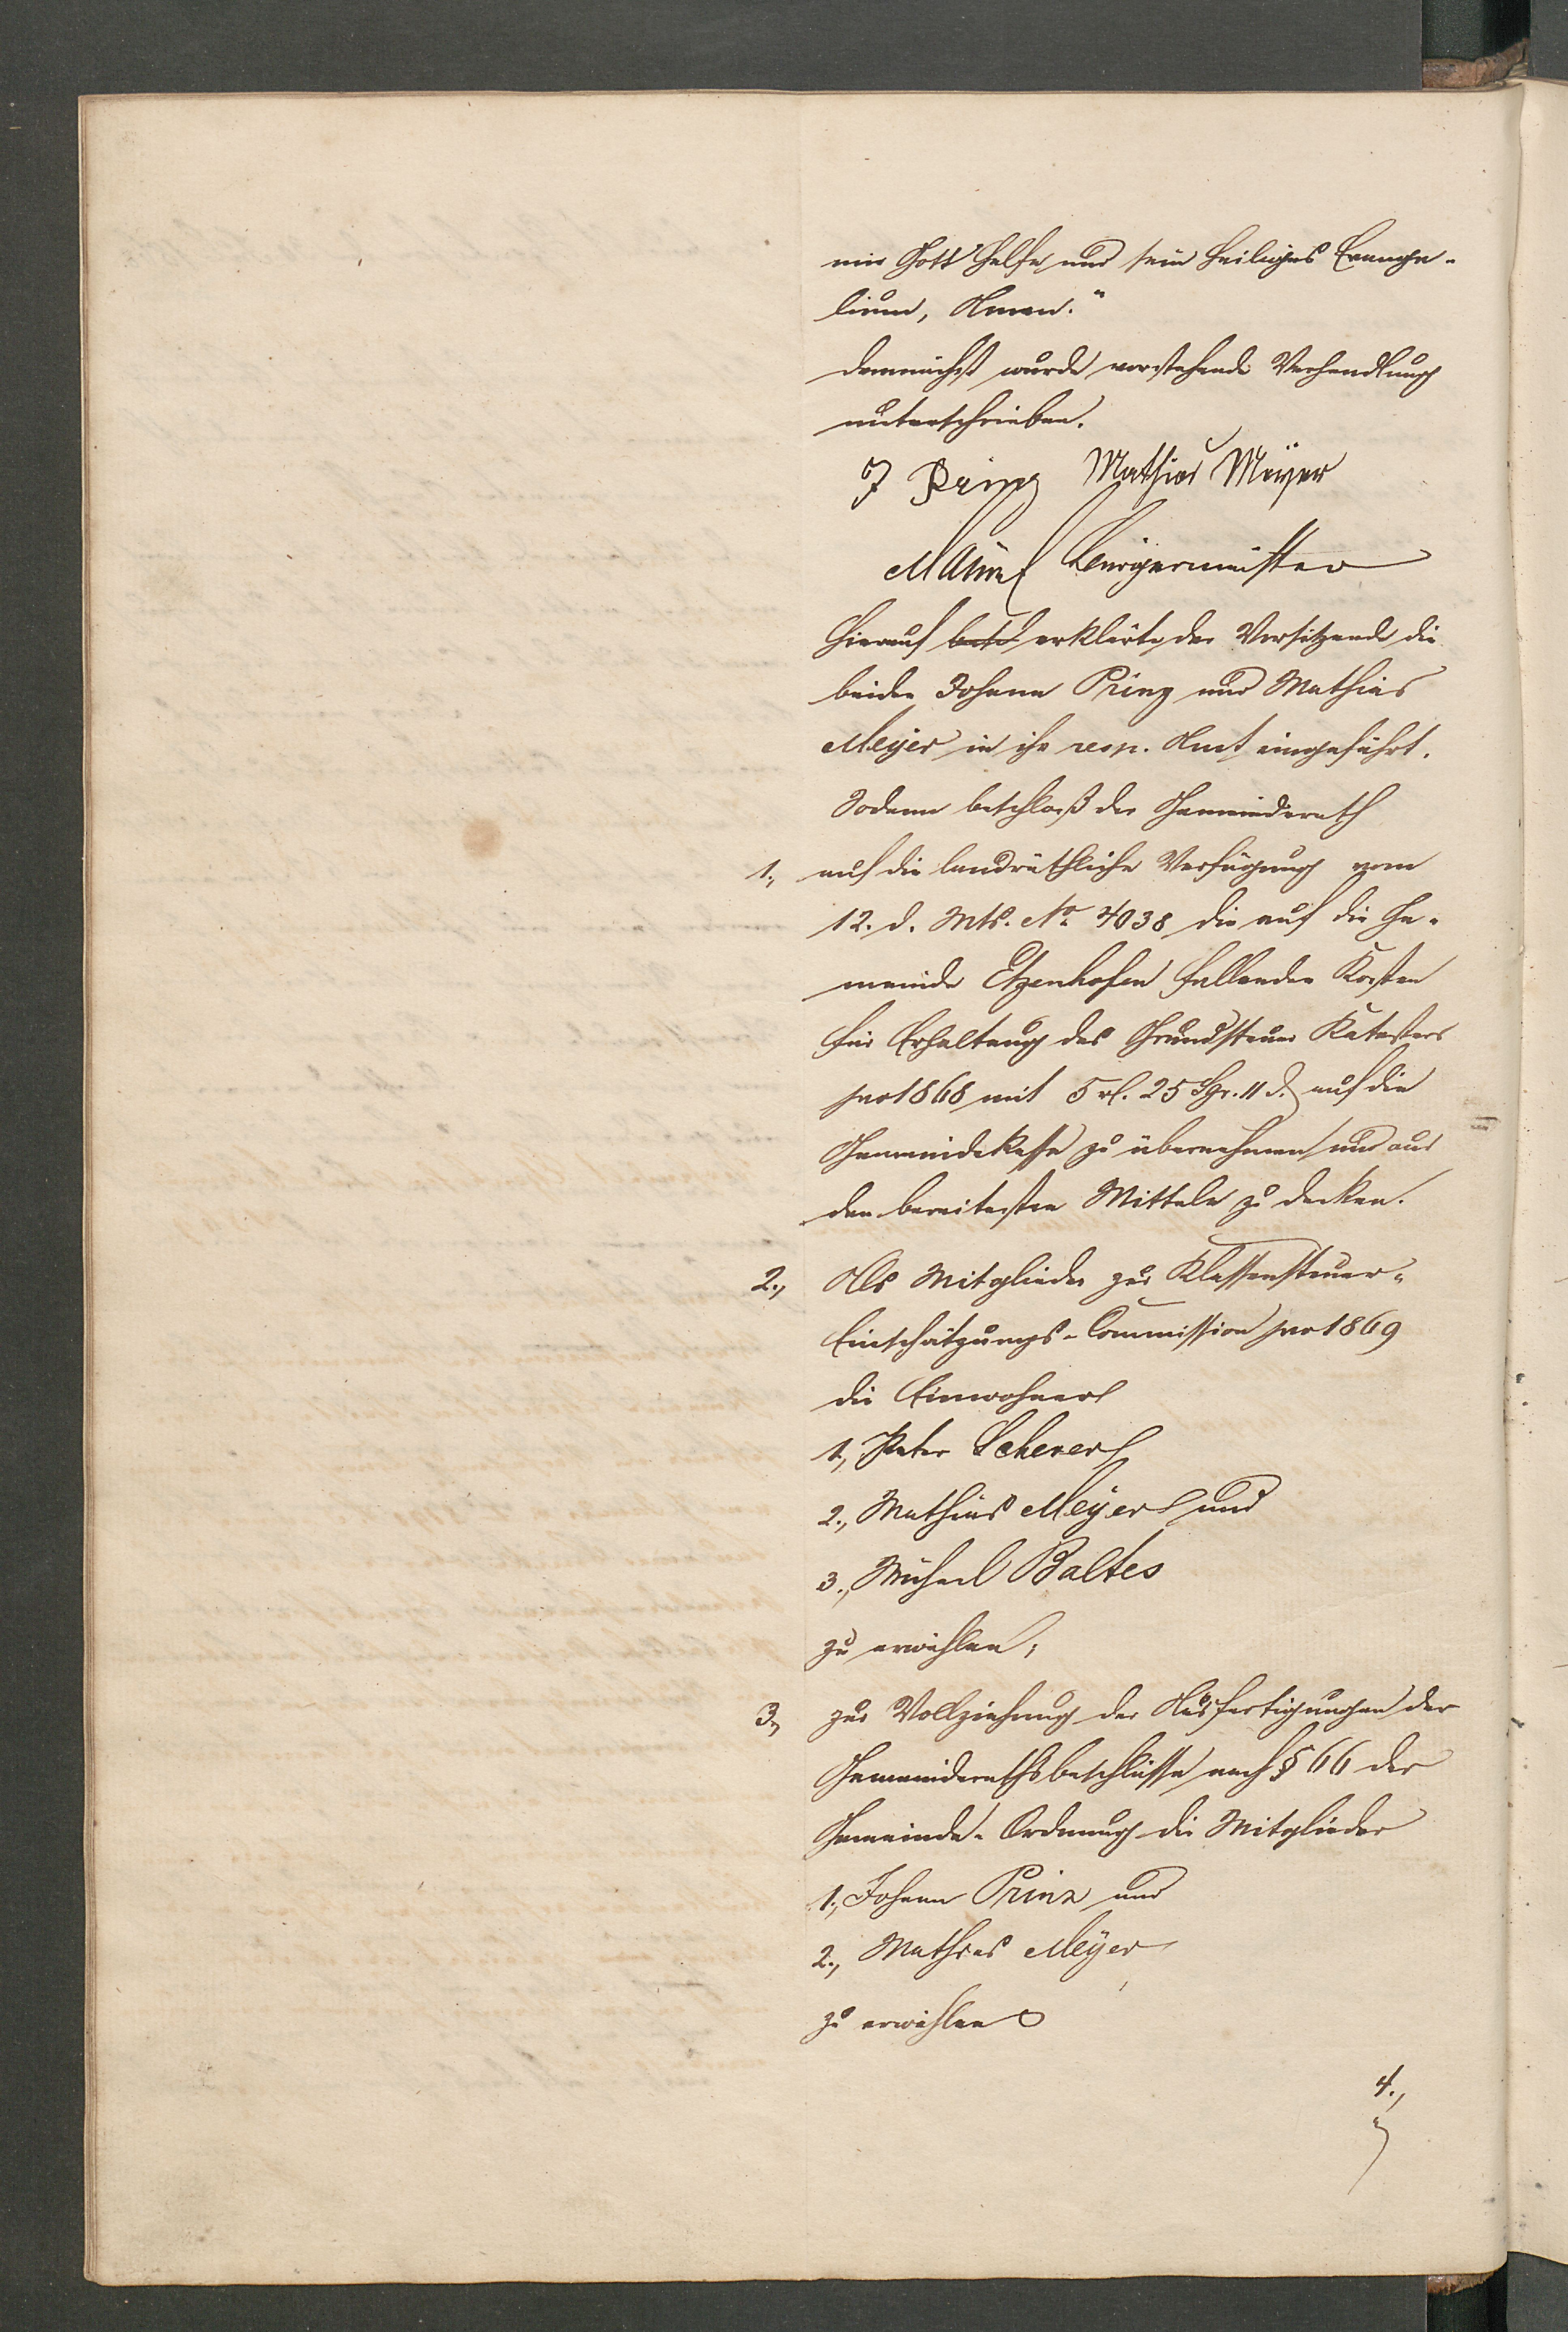 mir Gott helfe und sein heiliges Evange-
lium, Amen."
demnächst wurde vorstehende Verhandlung
unterschrieben.
J Prinz Mathias Meyer
Bürgermeister
Hierauf erklärte der Vorsitzende die
beiden Johann Prinz und Mathias
Meyer in ihr resp. Amt eingeführt.
Sodann beschloß der Gemeinderath
1., auf die landräthliche Verfügung vom
12. d. Mts. No 4038 die auf die Ge-
meinde Etzenhofen fallenden Kosten
für Erhaltung des Grundsteuer Katasters
pro 1868 mit 5 rl. 25 Sgr. 11 d. auf die
Gemeindekasse zu übernehmen und aus
den bereitesten Mitteln zu decken.
2., Als Mitglieder zur Klassensteuer-
Einschätzungs-Commission pro 1869
die Einwohner
1., Peter Scherer
2., Mathias Meyer und
3., Michael Baltes
zu erwählen;
3., zur Vollziehung der Ausfertigungen der
Gemeinderathsbeschlüsse nach § 66 der
Gemeinde-Ordnung die Mitglieder
1., Johann Prinz und
2., Mathias Meyer
zu erwählen
4.,